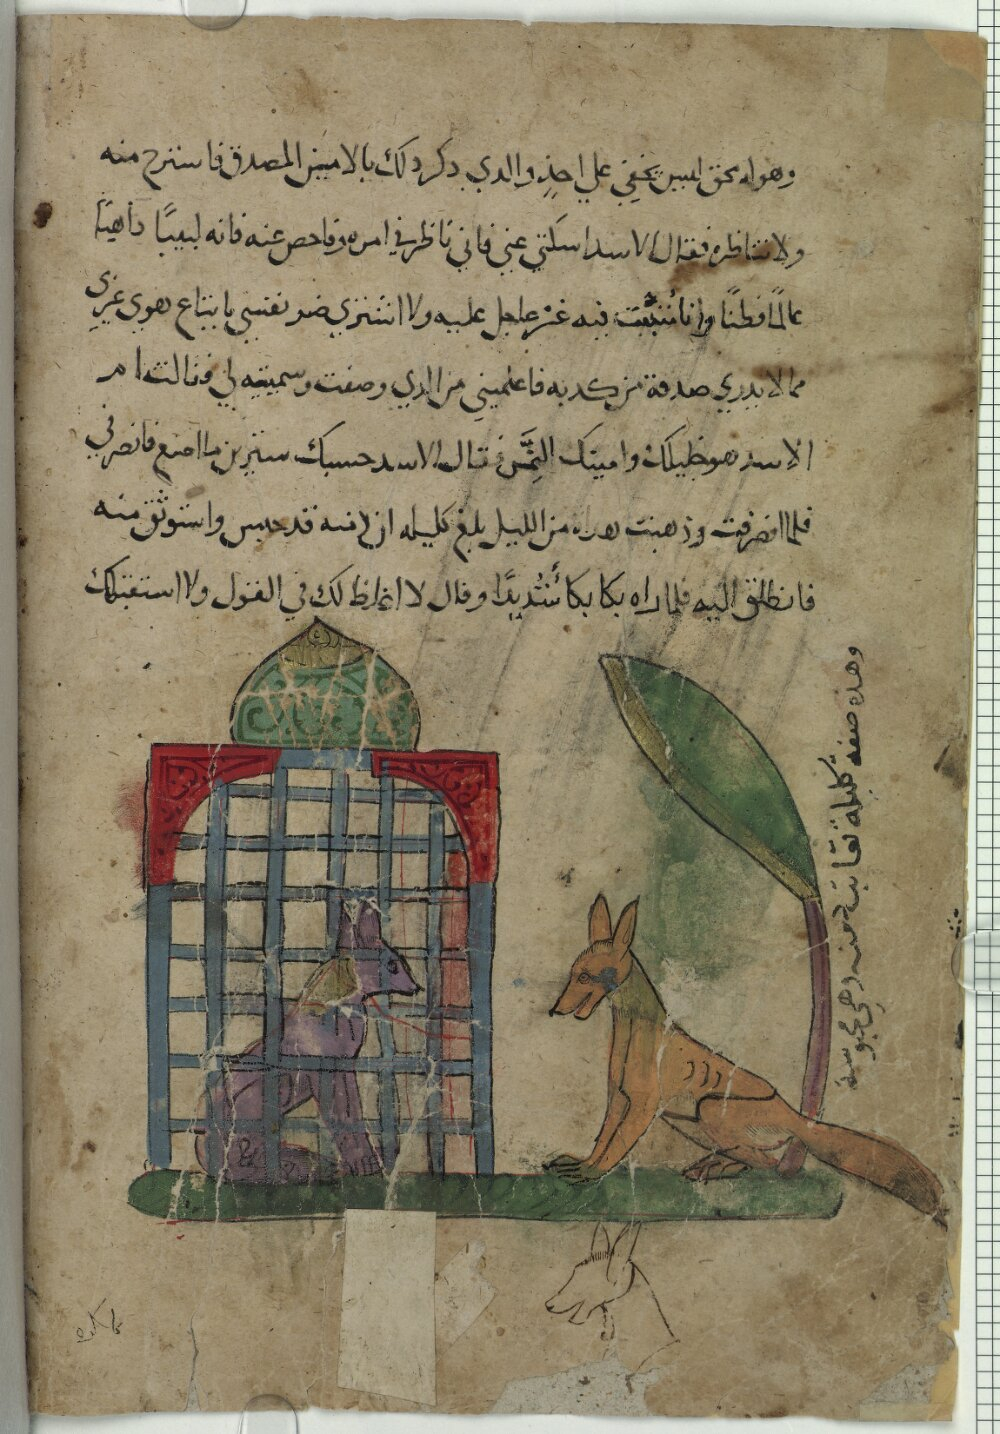 وهوانه يحق لميس يخفي علي احد والدي دكر دلك بالامين المصدق فاسترح منه
ولا تناظره فقال الاسد اسكتي عني فاني ناظر في امره وفاحص عنه فانه لبيبًا داهيتا
عالمًا فطنًا وانا متثبت فيه غير عاجل عليه ولا اشتري ضر نفسي باتباع هوي غيري
مما لا يدري صدقه من كدبه فاعلميني من الدي وصفت وسميتيه لي فقالت ام
الاسد هو خليلك وامينك النمر فقال الاسد حسبك سترين ما اصنع فانصرفي
فلما انصرفت وذهبت هداه من الليل بلغ كليله ان دمنه قد حبس واستوثق منه
فانطلق اليه فلما راه بكا بكاءً شديدًا وقال لا اغلظ لك في القول ولا استقبلك
وهذه صفة كليلة تعاتب دمنه وهي محبوسة